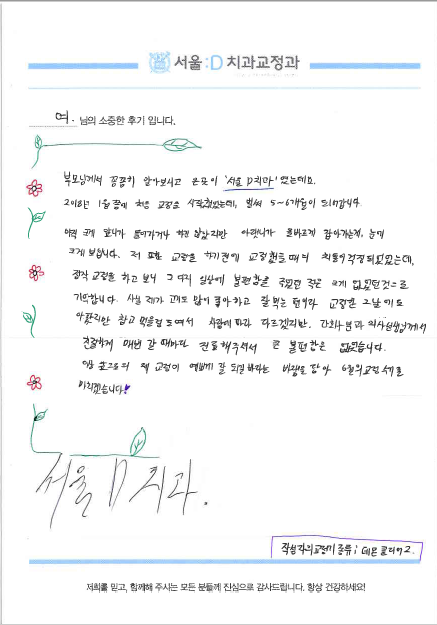 서울:D 치과교정과
여. 님의 소중한 후기 입니다.
부모님께서 꼼꼼히 알아보시고 온곳이 '서울 D치과' 였는데요.
2018년 1월 중에 처음 교정을 시작했었는데, 벌써 5~6개월이 되어갑니다.
아직 크게 효과가 들어가거나 하진 않았지만 아랫니가 올바르게 잡아가는게, 눈에
크게 보입니다. 저 또한 교정을 하기전에 교정했을때의 치통이 걱정되었었는데,
정작 교정을 하고 보니 그 다지 일상에 불편함을 주었던 적은 크게 없었던것으로
기억합니다. 사실 제가 고기도 많이 좋아하고 잘 먹는 편이라 교정한 그날에도
아팠지만 참고 먹을정도여서 사람에 따라 다르겠지만. 간호사님과 의사선생님께서
친절하게 매번 갈 때마다 진료해주셔서 큰 불편함은 없었습니다.
앞으로의 제 교정이 예쁘게 잘 되길 바라는 바램을 담아 6월의 교정 후기를
마치겠습니다!
서울 D 치과.
작성자의교정기 종류 ; 데몬 클리어2.
저희를 믿고, 함께해 주시는 모든 분들께 진심으로 감사드립니다. 항상 건강하세요!